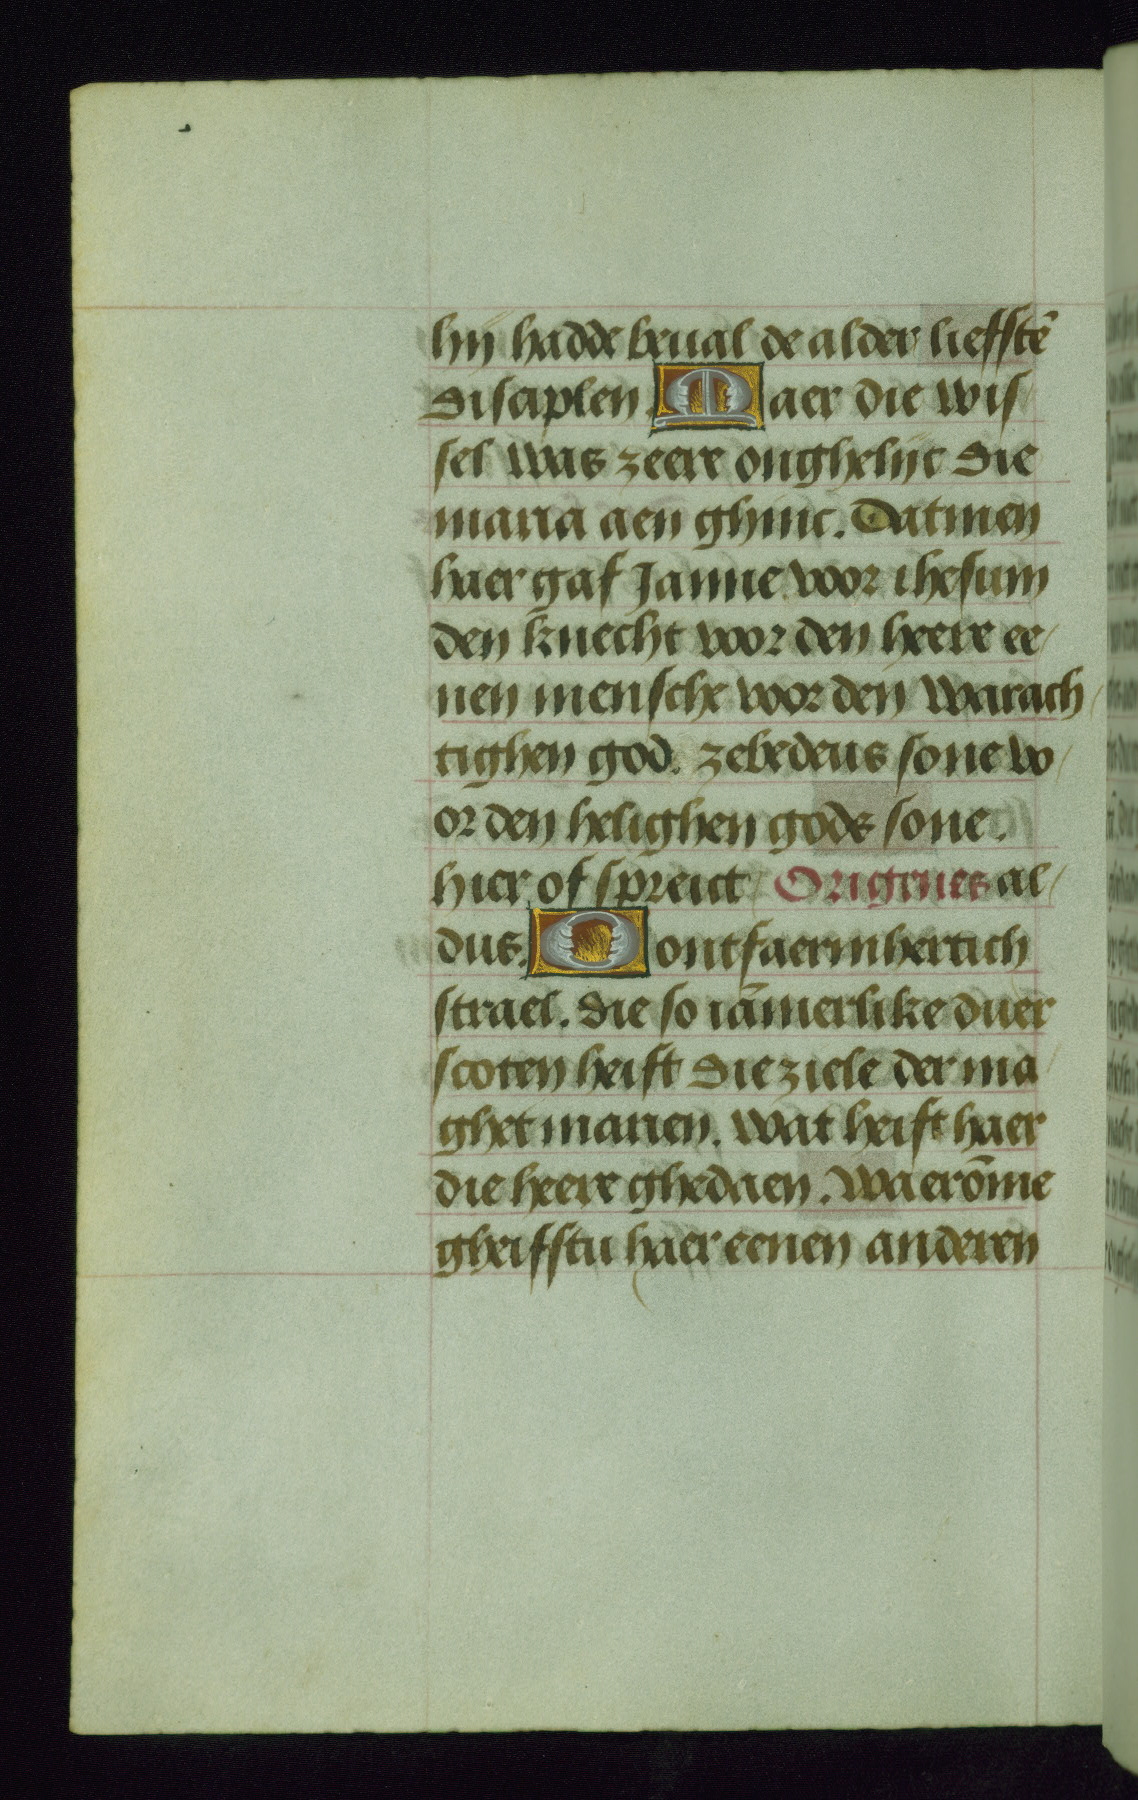 hij hadde beual de alder liefstē
disciplen. Maer die wis
sel was zeere onghelijc die
maria aen ghinc. Datmen
haer gaf Janne voor ihesum
den knecht voor den heere ee/
nen mensche voor den warach/
tighen god. zebedeus sone vo/
or den helighen gods sone.
hier of spreict Origenes al/
dus. O ontfaermhertich
strael. die so iāmerlike duer
scoten heift die ziele der ma/
ghet marien. wat heift haer
die heere ghedaen. Waerōme
gheifstu haer eenen anderen